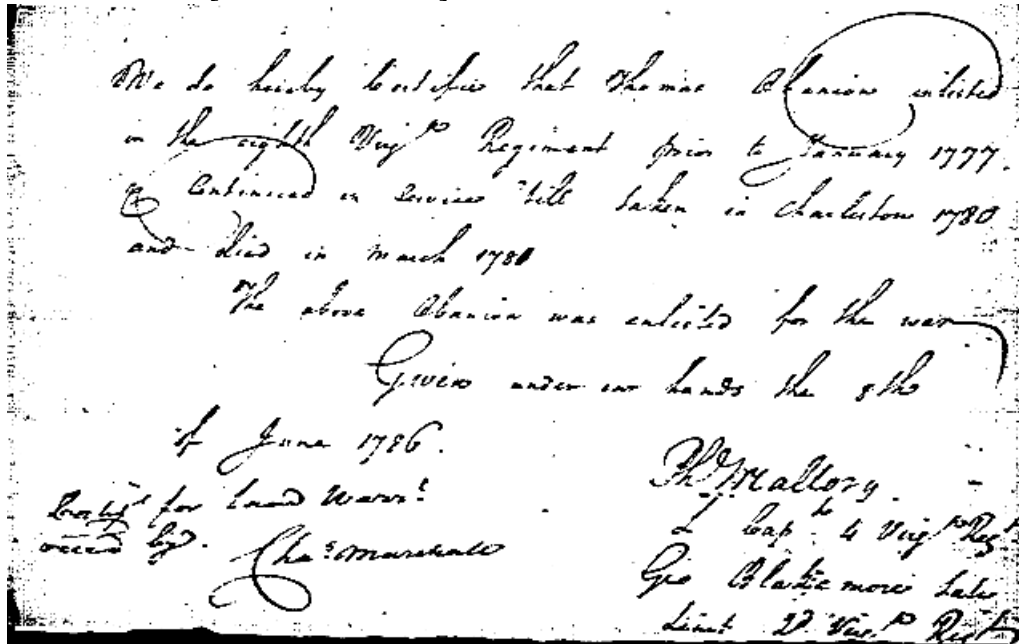 We do hereby Certifie that Thomas Obanion inlisted
in the eighth Virga Regiment prior to January 1777.
& Continued in Service till taken in Charlestow 1780
and died in March 1781
The above Obanion was enlisted for the war
Given under our hands the 8th
of June 1786.
Phil Mallory.
L Capt 4 Virga Regt
Geo Blakemore late
Lieut 2d Virga Regt
for Land Warrt
Chas Marshall